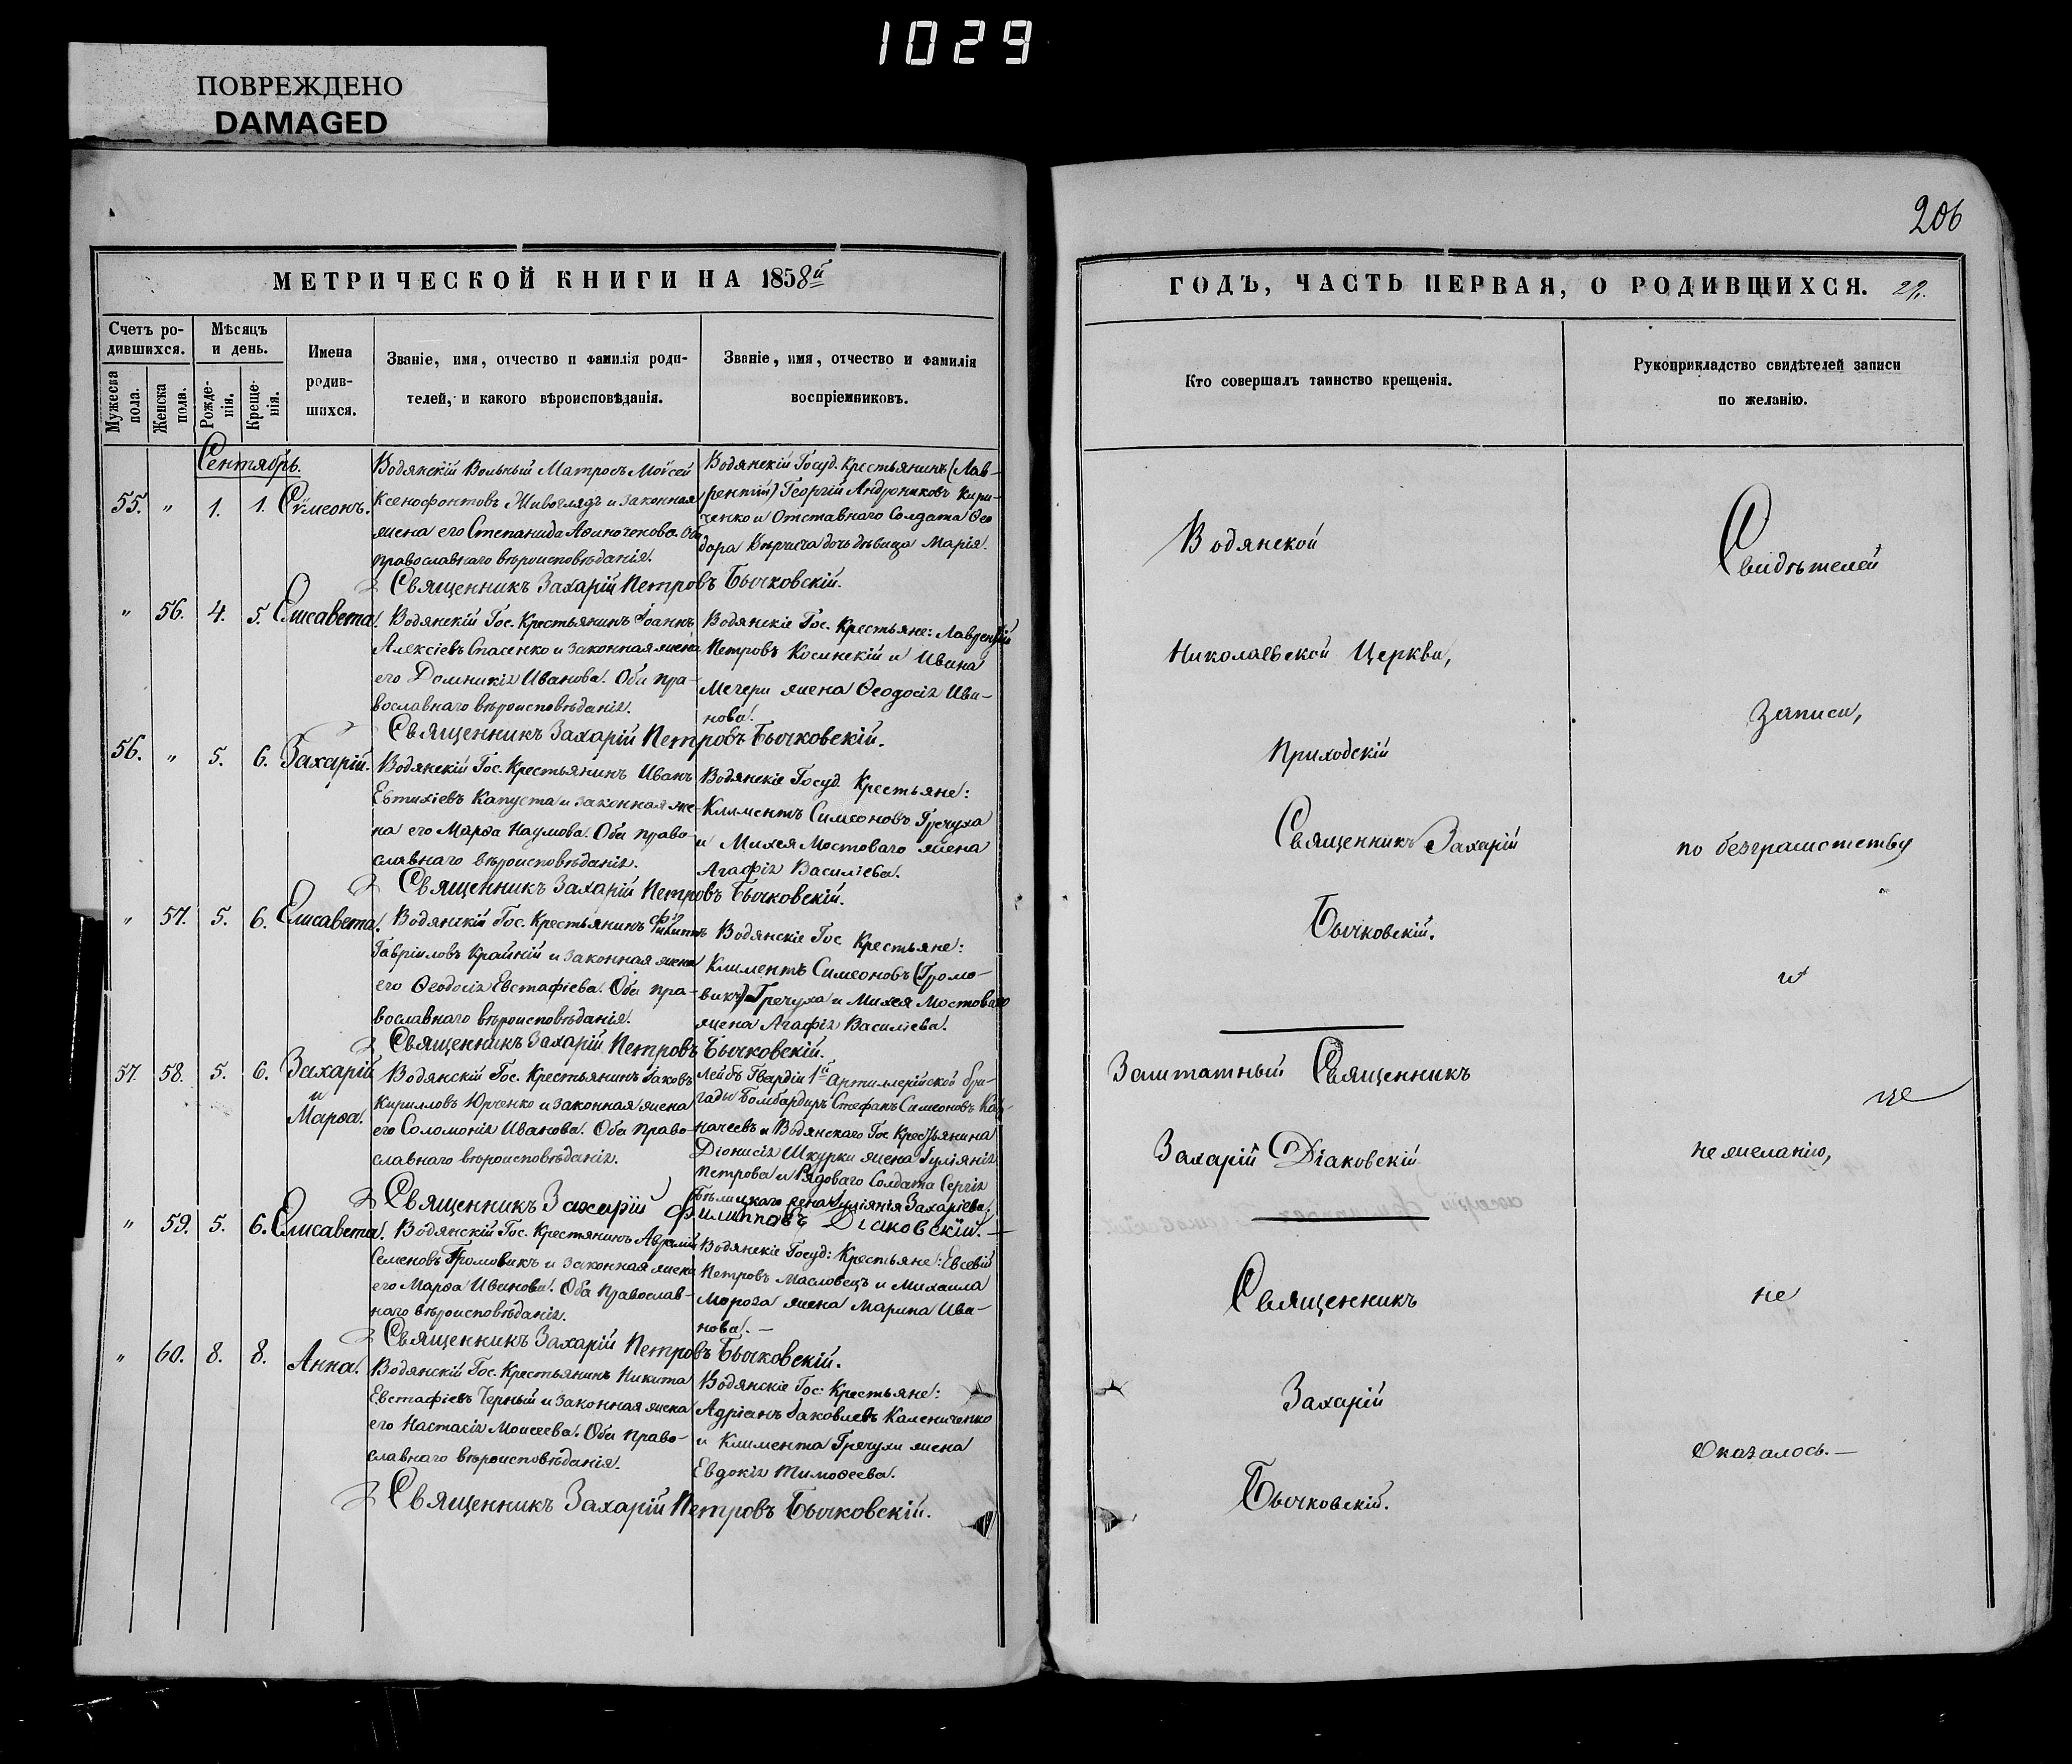 1029
ПОВРЕЖДЕНО
DAMAGED
МЕТРИЧЕСКОЙ КНИГИ НА 1858й
Счетъ ро-
дившихся.
Мѣсяцъ
и день.
Мужеска
пола.
Женска
пола.
Рожде-
нія.
Креще-
нія.
Имена
родив-
шихся.
Званіе, имя, отчество и фамилія роди-
телей, и какого вѣроисповѣданія.
Званіе, имя, отчество и фамилія
воспріемниковъ.
Сентябрь.
55. " 1. 1. Сѵмеонъ.
Водянскій Вольный Матросъ Моѵсей
Ксенофонтовъ Живоглядъ и законная
жена его Степанида. Оба
православнаго вѣроисповѣданія.
Водянскій Госуд. Крестьянинъ (Лав-
рентій) Георгій Андрониковъ Кири-
ченко и Отставнаго Солдата Ѳео
дора дочь дѣвица Марія.
Священникъ Захарій Петровъ Бычковскій.
" 56. 4. 5. Елисавета.
Водянскій Гос. Крестьянинъ Іоаннъ
Алексіевъ Спасенко и законная жена
его Домникія Иванова. Оба пра-
вославнаго вѣроисповѣданія.
Водянскіе Гос. Крестьяне: Лаврентій
Петровъ Косинскій и Ивана
Мечери жена Ѳеодосія Ива-
нова.
Священникъ Захарій Петровъ Бычковскій.
56. " 5. 6. Захарій.
Водянскій Гос. Крестьянинъ Иванъ
Евтихіевъ Капуста и законная же-
на его Марѳа Наумова. Оба право-
славнаго вѣроисповѣданія.
Водянскіе Госуд. Крестьяне:
Климентъ Симеоновъ Гречуха
и Михея Мостоваго жена
Агафія Василіева.
Священникъ Захарій Петровъ Бычковскій.
" 57. 5. 6. Елисавета.
Водянскій Гос. Крестьянинъ Филиппъ
Гавріиловъ Крайній и законная жена
его Ѳеодосія Евстафіева. Оба пра-
вославнаго вѣроисповѣданія.
Водянскіе Гос. Крестьяне:
Климентъ Симеоновъ (Громо-
викъ) Гречуха и Михея Мостоваго
жена Агафія Василіева.
Священникъ Захарій Петровъ Бычковскій.
57. 58. 5. 6. Захарій
и
Марѳа.
Водянскій Гос. Крестьянинъ Іаковъ
Кирилловъ Юрченко и законная жена
его Соломонія Иванова. Оба право-
славнаго вѣроисповѣданія.
Лейбъ Гвардіи 1й Артиллерійской бри-
гады Бомбардиръ Стефанъ Симеоновъ
и Водянскаго Гос. Крестьянина
Діонисія Шкурки жена Іуліанія
Петрова и Рядоваго Солдата Сергія
жена Іуліянія Захаріева.
Священникъ Захарій Филипповъ Діаковскій.
" 59. 5. 6. Елисавета.
Водянскій Гос. Крестянинъ Аврамій
Семеновъ Громовикъ и законная жена
его Марѳа Иванова. Оба православ-
наго вѣроисповѣданія.
Водянскіе Госуд: Крестьяне: Евсевій
Петровъ Масловецъ и Михаила
Мороза жена Марина Ива-
нова. —
Священникъ Захарій Петровъ Бычковскій.
" 60. 8. 8. Анна.
Водянскій Гос. Крестьянинъ Никита
Евстафіевъ Черный и законная жена
его Настасія Моисеева. Оба право-
славнаго вѣроисповѣданія.
Водянскіе Гос: Крестьяне:
Адріанъ Іаковлевъ Калениченко
и Климента Гречухи жена
Евдокія Тимоѳеева.
Священникъ Захарій Петровъ Бычковскій.
206
ГОДЪ, ЧАСТЬ ПЕРВАЯ, О РОДИВШИХСЯ.
Кто совершалъ таинство крещенія.
Рукоприкладство свидѣтелей записи
по желанію.
Водянской
Николаевской Церкви,
Приходскій
Священникъ Захарій
Бычковскій.
Заштатный Священникъ
Захарій Діаковскій
Священникъ
Захарій
Бычковскій.
Свидѣтелей
записи,
по безграмотству
и
не желанію,
не
Оказалось. —